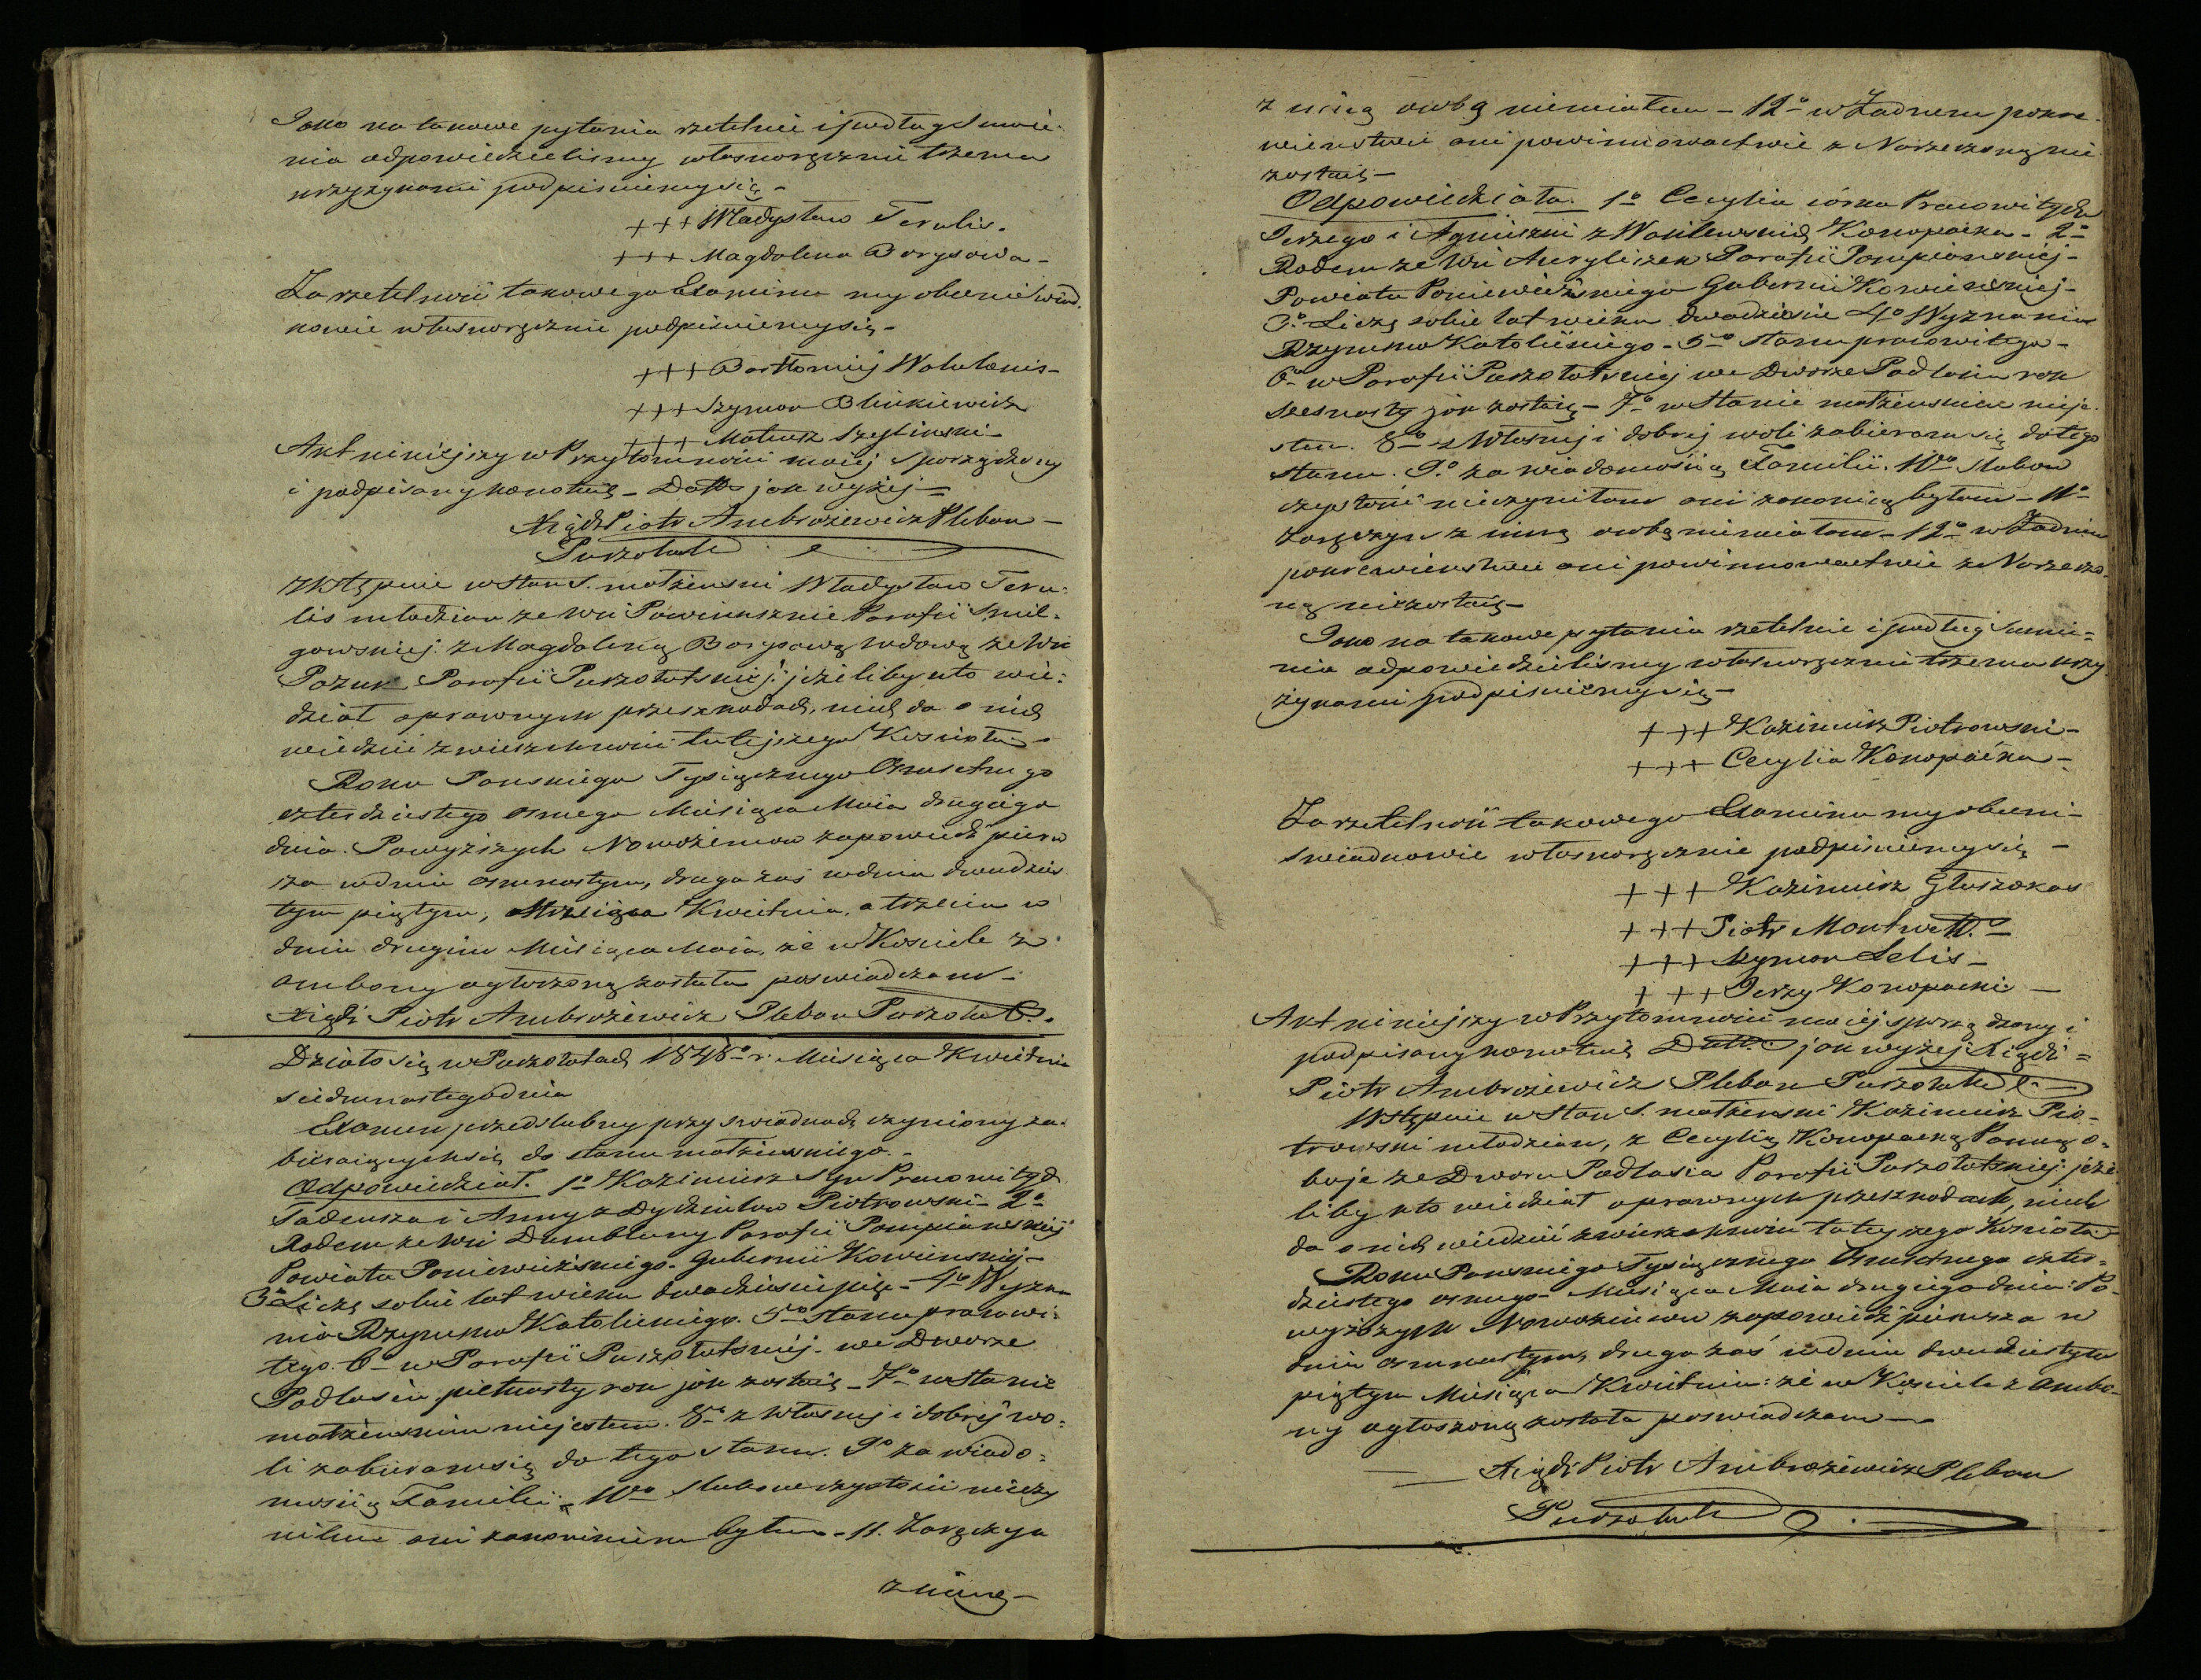 Jako na takowe pytania rzetelnie i podług Sumie-
nia odpowiedzielismy własnoręcznie trzema
krzyżykami podpisuiemy się –
+++ Władysław Terulis.
+++ Magdalena Borysowa –
Za rzetelność takowego Examinu my obecni Swiad-
kowie własnoręcznie podpisuiemy się –
+++ Bartłomiej
+++ Szymon Blinkiewicz
+++ Mateusz
Akt niniejszy w Przytomności moiej sporządzony
i podpisany konotuię – Datt jak wyżej –
Xiądz Piotr Ambrożewicz Pleban –
Puszołatt
Wstępuie w Stan S. małżenski Władysław Teru-
lis młodzian ze Wsi Powiniksznie Parafii Smil-
gowskiej z Magdaleną Borysową wdową ze Wsi
Pozuk Parafii Puszołatskiej: jeżeliby kto wie-
dział oprawnych przeszkodach, niech da o nich
wiedzieć zwierzchności tutejszego Koscioła –
Roku Panskiego Tysiącznego Osmsetnego
czterdziestego osmego Miesiąca Maia drugiego
dnia. Powyższych Nowożencow zapowiedź pierw
sza w dniu osmnastym, druga zaś w dniu dwudzies
tym piątym, Miesiąca Kwietnia, a trzecia w
dniu drugim Miesiąca Maia, że w Kosciele z
ambony ogłoszoną została poswiadczam –
Xiądz Piotr Ambrożewicz Pleban Puszołat.
Działo się w Puszołatach 1848o r. Miesiąca Kwietnia
siedmnastego dnia
Examen przedslubny przy swiadkach czyniony za-
bieraiącychsię do stanu małżenskiego. –
Odpowiedział. 1o Kazimierz Syn Pracowitych
Tadeusza i Anny z Piotrowski – 2o
Rodem ze Wsi Dumbluny Parafii Pompianskiej
Powiatu Poniewieżskiego – Gubernii Kowienskiej –
3o Liczę sobie lat wieku dwadziescia pięc – 4o Wyzna
nia Rzymsko Katolickiego. 5o Stanu pracowi-
tego. 6o w Parafii Puszołatskiej – we Dworze
Podlasiu pietnasty rok jak zostaię – 7o w Stanie
małżenskim niejestem. 8o z Własnej i dobrej wo-
li zabieramsię do tego stanu. 9o za wiado-
moscią Familii – 10o Slubow czystości nieczy
niłem ani zakonnikiem byłem – 11. Zaręczyn
z inną –
z inną osobą niemiałem – 12o w Żadnem pokre-
wienstwie ani powinowactwie z Narzeczoną nie
zostaię –
Odpowiedziała. 1o Cecylia córka Pracowitych
Jerzego i Agnieszki z Konopacka – 2o
Rodem ze Wsi Parafii Pompianskiej –
Powiatu Poniewieżskiego Gubernii Kowienskiej –
3o Liczę sobie lat wieku dwadziescie 4o Wyznania
Rzymsko Katolickiego – 5o Stanu pracowitego –
6o w Parafii Puszołatskiej we Dworze Podlasiu rok
szesnasty jak zostaię – 7o w Stanie małżenskim nieje-
stem. 8o z Własnej i dobrej woli zabieram się do tego
stanu. 9o za wiadomością Familii. 10o Slubow
czystości nieczyniłam ani zakonnicą byłam – 11o
Zaręczyn z inną osobą niemiałam – 12o w Żadnem
pokrewienstwie ani powinnowactwie z Narzeczo-
ną niezostaię –
Jako na takowe pytania rzetelnie i podług Sumie-
nia odpowiedzielismy własnoręcznie trzema krzy
żykami podpisuiemy się –
+++ Kazimierz Piotrowski –
+++ Cecylia Konopacka –
Za rzetelność takowego Examinu my obecni –
swiadkowie własnoręcznie podpisuiemy się –
+++ Kazimierz Głuszokas
+++ Piotr Montwiłło
+++ Szymon Lelis –
+++ Jerzy Konopacki –
Akt niniejszy w Przytomności moiej sporządzony i
podpisany konotuię Datt. jak wyżej Xiądz –
Piotr Ambrożewicz Pleban Puszołatt
Wstępuie w Stan S. małżenski Kazimierz Pio-
trowski młodzian, z Cecylią Konopacką Panną o-
boje ze Dworu Podlasia Parafii Puszołatskiej: jeże
liby kto wiedział oprawnych przeszkodach, niech
da o nich wiedzieć zwierzchności tutejszego Koscioła
Roku Panskiego Tysiącznego Osmsetnego czter-
dziestego osmego – Miesiąca Maia drugiego dnia: Po-
wyższych Nowożencow zapowiedź pierwsza w
dniu osmnastym, druga zaś w dniu dwudziestym
piątym Miesiąca Kwietnia: że w Kosciele z ambo-
ny ogłoszoną została poswiadczam –
Xiądz Piotr Ambrożewicz Pleban
Puszołatt